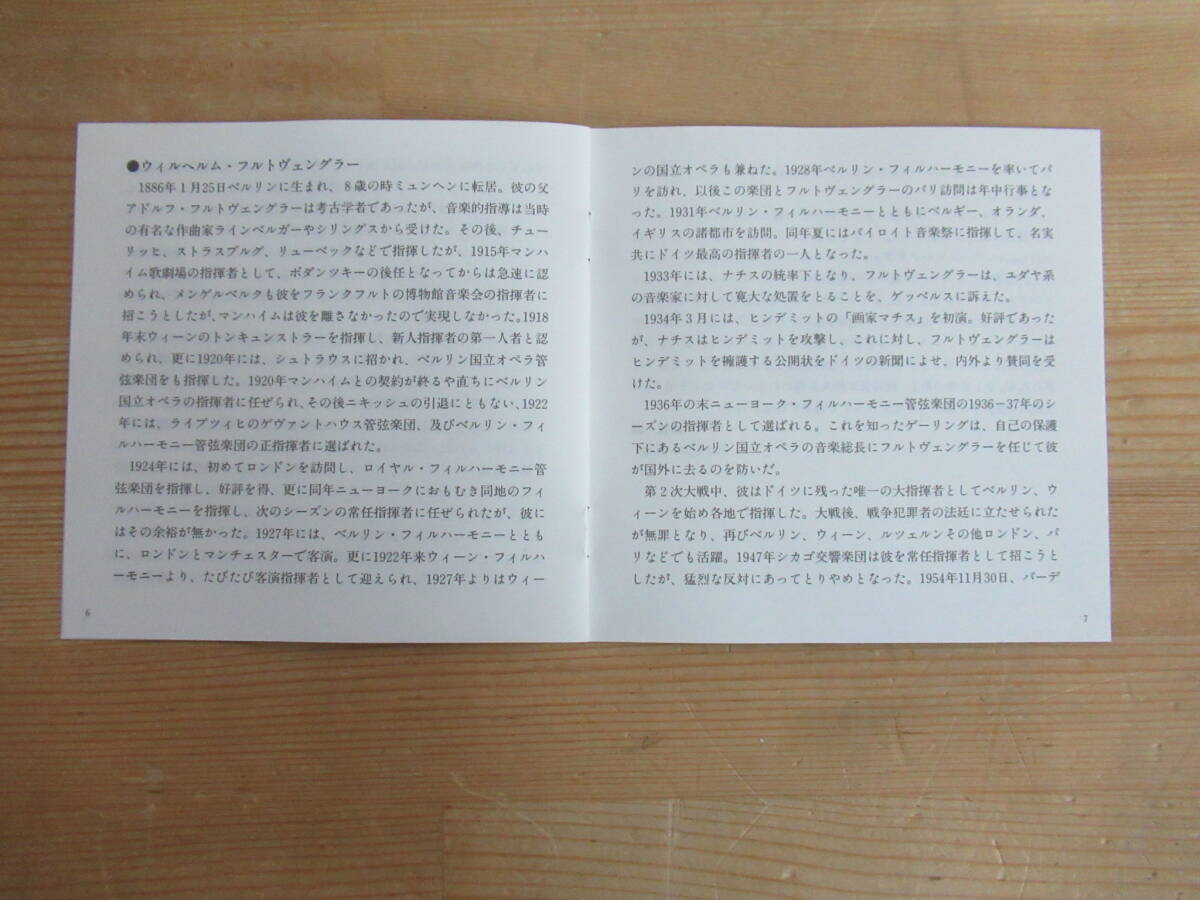 ●ウィルヘルム・フルトヴェングラー
1886年1月25日ベルリンに生まれ、8歳の時ミュンヘンに転居。彼の父
アドルフ・フルトヴェングラーは考古学者であったが、音楽的指導は当時
の有名な作曲家ラインベルガーやシリングスから受けた。その後、チュー
リッヒ、ストラスブルグ、リューベックなどで指揮したが、1915年マンハ
イム歌劇場の指揮者として、ボダンツキーの後任となってからは急速に認
められ、メンゲルベルクも彼をフランクフルトの博物館音楽会の指揮者に
招こうとしたが、マンハイムは彼を離さなかったので実現しなかった。1918
年末ウィーンのトンキュンストラーを指揮し、新人指揮者の第一人者と認
められ、更に1920年には、シュトラウスに招かれ、ベルリン国立オペラ管
弦楽団をも指揮した。1920年マンハイムとの契約が終るや直ちにベルリン
国立オペラの指揮者に任ぜられ、その後ニキッシュの引退にともない、1922
年には、ライプツィヒのゲヴァントハウス管弦楽団、及びベルリン・フィ
ルハーモニー管弦楽団の正指揮者に選ばれた。
1924年には、初めてロンドンを訪問し、ロイヤル・フィルハーモニー管
弦楽団を指揮し、好評を得、更に同年ニューヨークにおもむき同地のフィ
ルハーモニーを指揮し、次のシーズンの常任指揮者に任ぜられたが、彼に
はその余裕が無かった。1927年には、ベルリン・フィルハーモニーととも
に、ロンドンとマンチェスターで客演。更に1922年来ウィーン・フィルハ
ーモニーより、たびたび客演指揮者として迎えられ、1927年よりはウィー
6
ンの国立オペラも兼ねた。1928年ベルリン・フィルハーモニーを率いてパ
リを訪れ、以後この楽団とフルトヴェングラーのパリ訪問は年中行事とな
った。1931年ベルリン・フィルハーモニーとともにベルギー、オランダ、
イギリスの諸都市を訪問。同年夏にはバイロイト音楽祭に指揮して、名実
共にドイツ最高の指揮者の一人となった。
1933年には、ナチスの統率下となり、フルトヴェングラーは、ユダヤ系
の音楽家に対して寛大な処置をとることを、ゲッベルスに訴えた。
1934年3月には、ヒンデミットの「画家マチス」を初演。好評であった
が、ナチスはヒンデミットを攻撃し、これに対し、フルトヴェングラーは
ヒンデミットを擁護する公開状をドイツの新聞によせ、内外より賛同を受
けた。
1936年の末ニューヨーク・フィルハーモニー管弦楽団の1936-37年のシ
ーズンの指揮者として選ばれる。これを知ったゲーリングは、自己の保護
下にあるベルリン国立オペラの音楽総長にフルトヴェングラーを任じて彼
が国外に去るのを防いだ。
第2次大戦中、彼はドイツに残った唯一の大指揮者としてベルリン、ウィ
ーンを始め各地で指揮した。大戦後、戦争犯罪者の法廷に立たせられた
が無罪となり、再びベルリン、ウィーン、ルツェルンその他ロンドン、パ
リなどでも活躍。1947年シカゴ交響楽団は彼を常任指揮者として招こうと
したが、猛烈な反対にあってとりやめとなった。1954年11月30日、バーデ
7